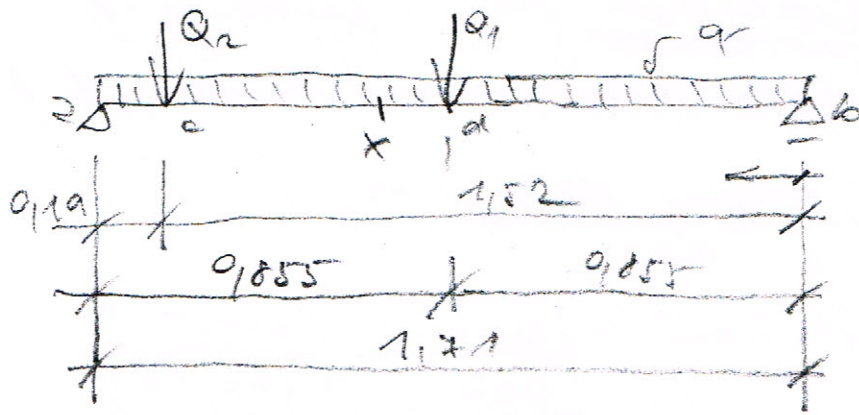 Q₂ Q₁ q
a c x d b
0,19 1,52
0,855 0,855
1,71